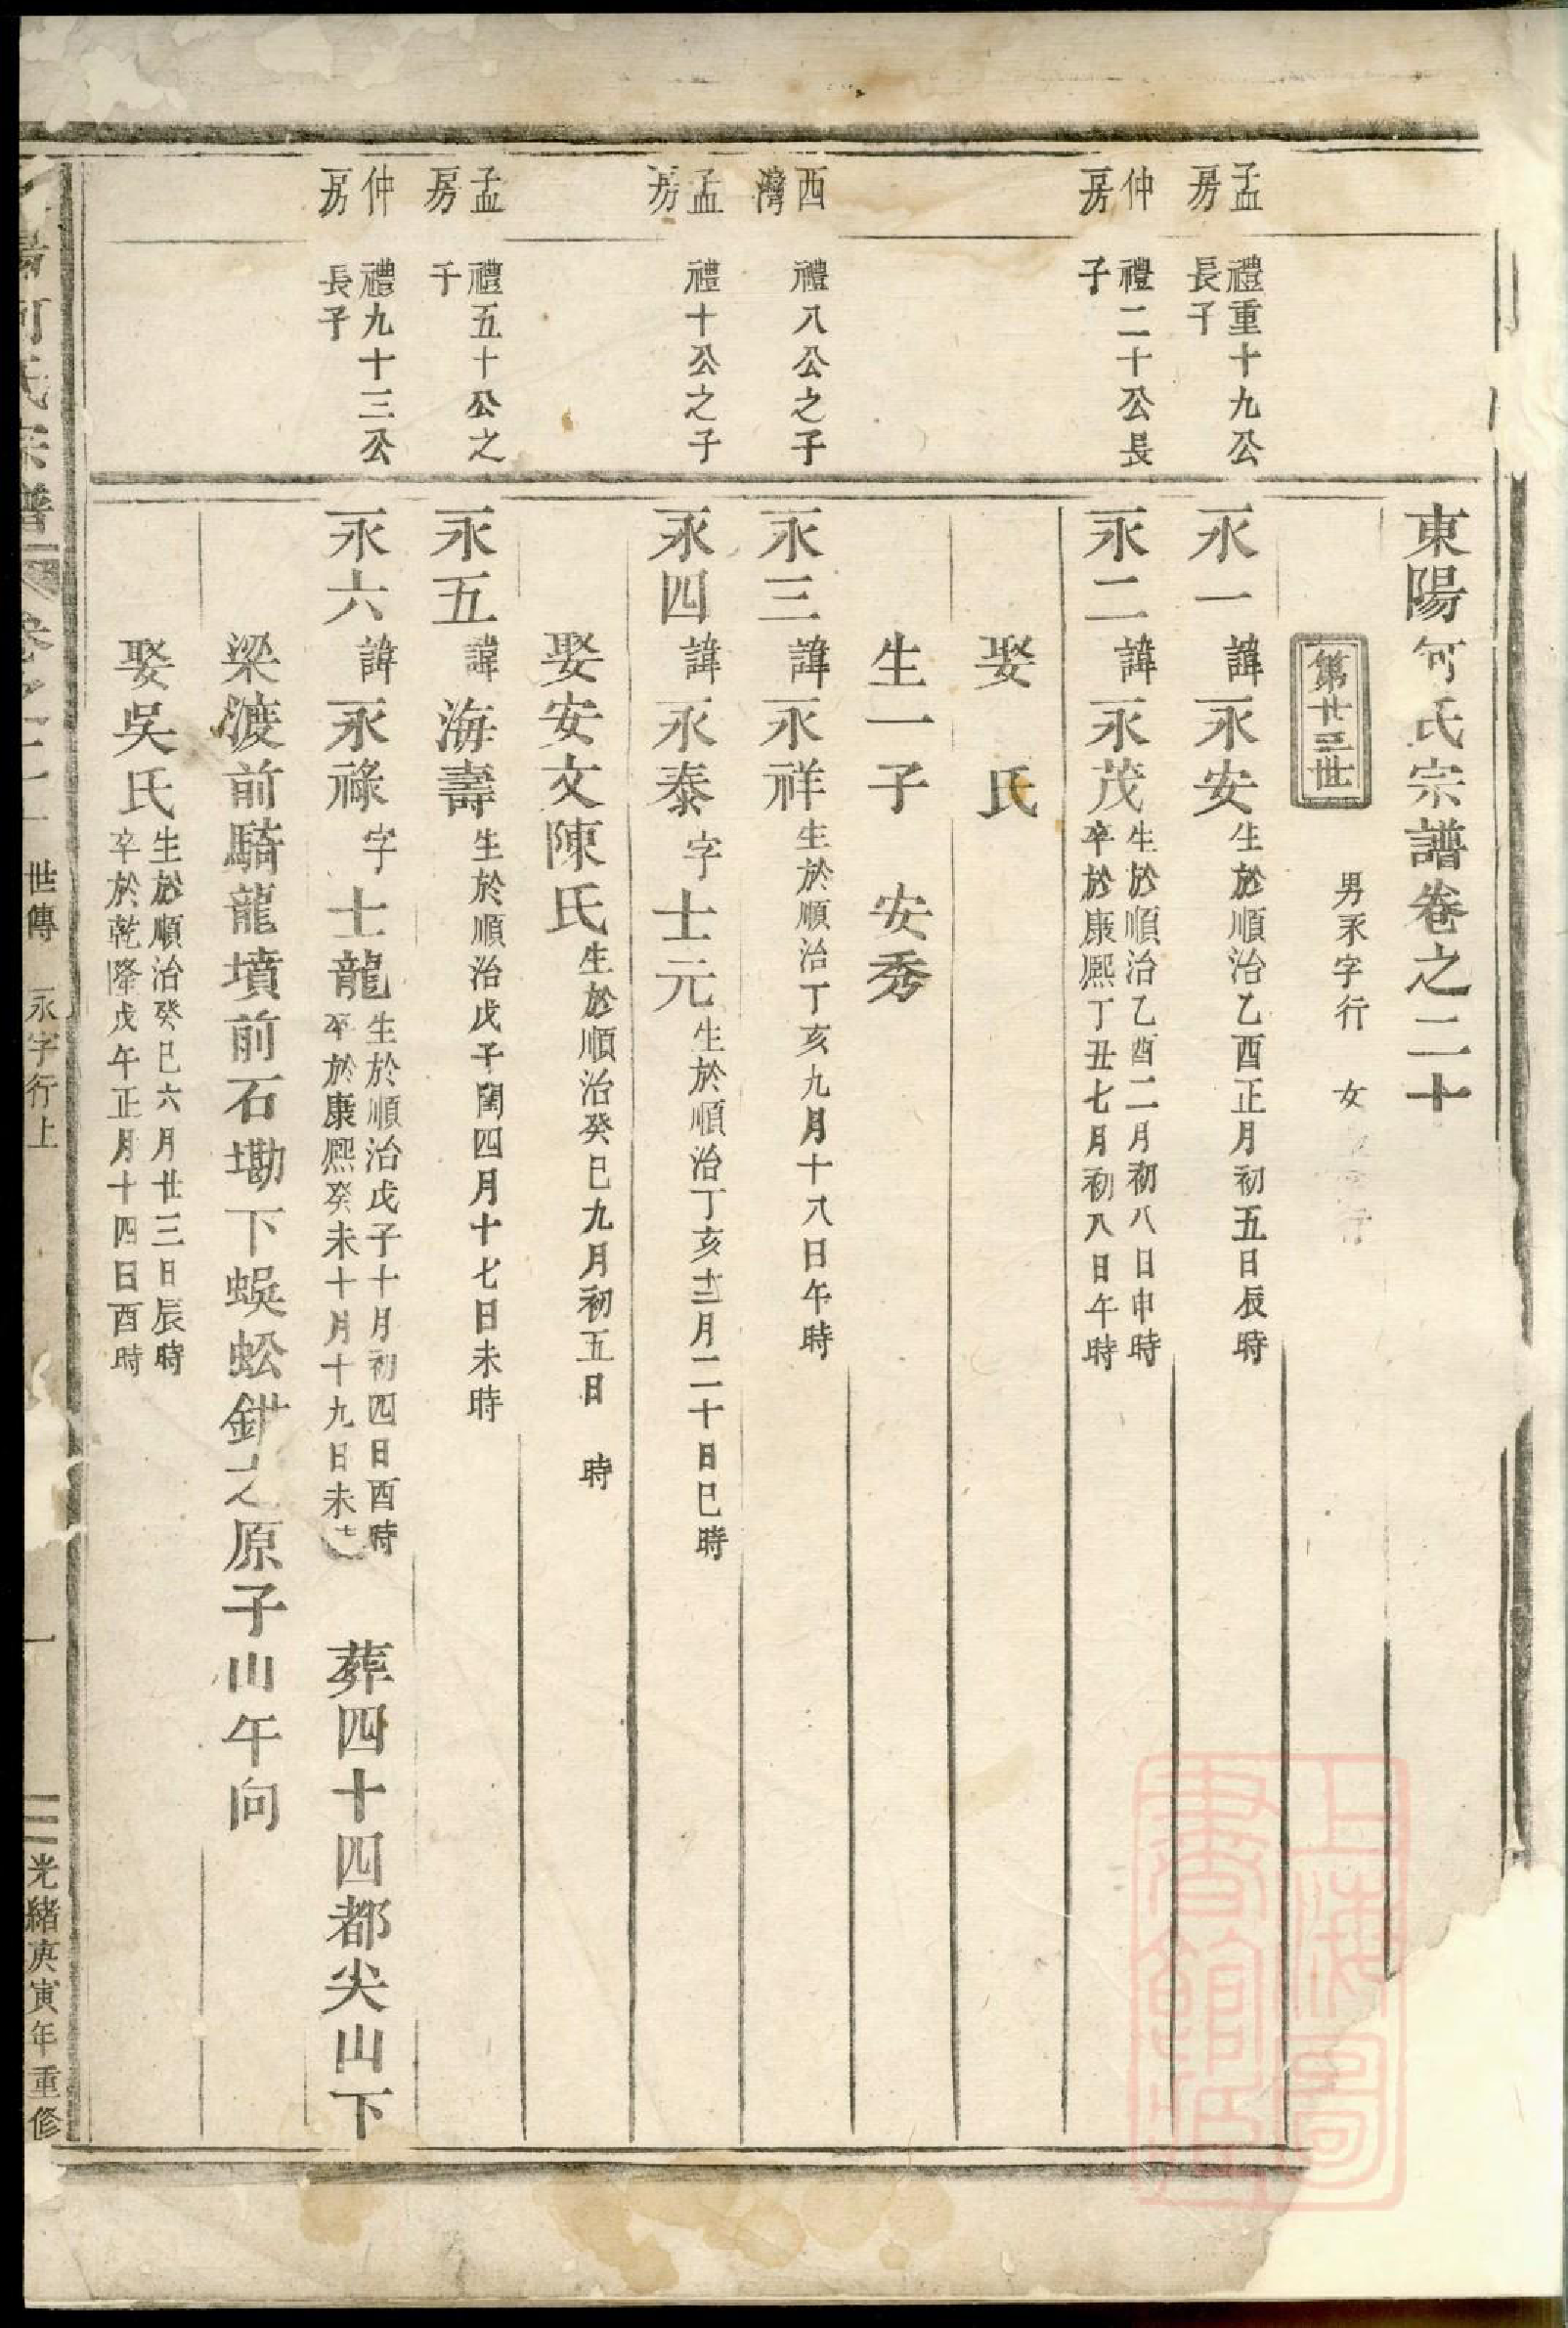 東陽何氏宗譜卷之二十
第廿三世
男永字行 女
孟房
禮重十九公長子
永一 諱永安 生於順治乙酉正月初五日辰時
仲房
禮二十公長子
永二 諱永茂 生於順治乙酉二月初八日申時
卒於康熙丁丑七月初八日午時
娶 氏
生一子 安秀
西灣
禮八公之子
永三 諱永祥 生於順治丁亥九月十八日午時
孟房
禮十公之子
永四 諱永泰 字士元 生於順治丁亥十二月二十日巳時
娶安文陳氏 生於順治癸巳九月初五日 時
孟房
禮五十公之子
永五 諱海壽 生於順治戊子閏四月十七日未時
仲房
禮九十三公長子
永六 諱永祿 字士龍 生於順治戊子十月初四日酉時
卒於康熙癸未十月十九日未
葬四十四都尖山下
梁渡前騎龍墳前石墈下蜈蚣鉗之原子山午向
娶吳氏 生於順治癸巳六月廿三日辰時
卒於乾隆戊午正月十四日酉時
何氏宗譜 卷之二十 世傳 永字行上 一 光緒庚寅年重修
上海圖書館藏